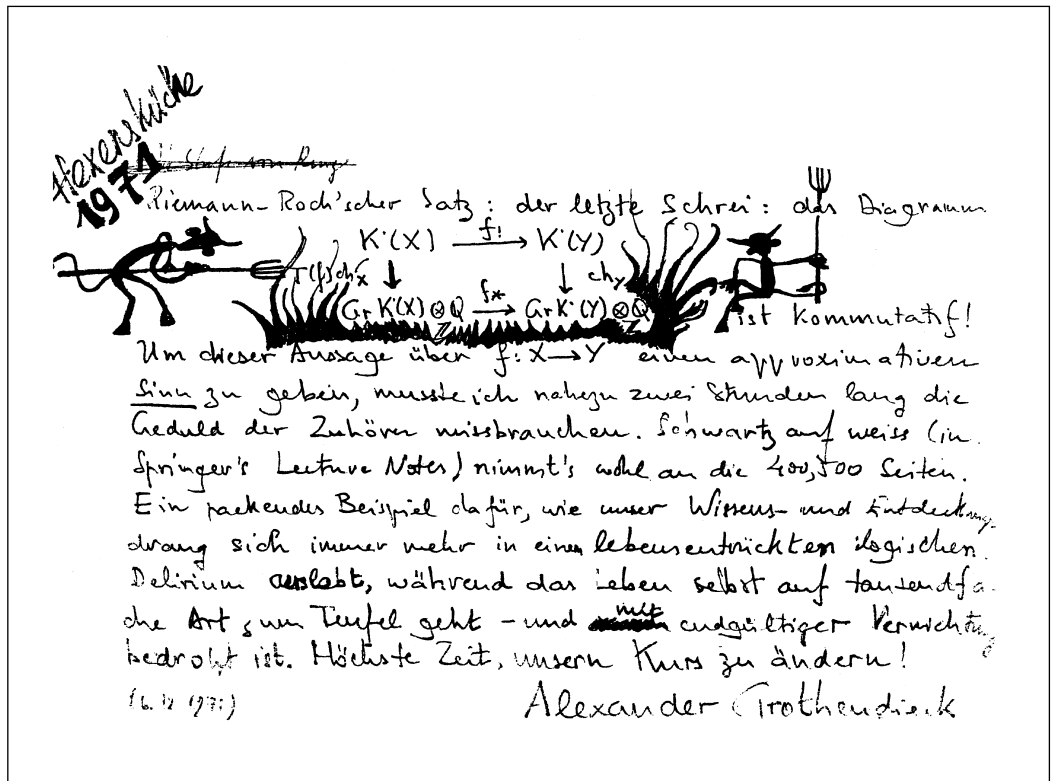 Hexenküche
1971
Riemann-Roch'scher Satz: der letzte Schrei: das Diagramm
K˙(X) f! → K˙(Y)
T(f)ch_X ↓ ↓ ch_Y
Gr K˙(X)⊗Q f* → Gr K˙(Y)⊗Q
Z Z
ist kommutatif!
Um dieser Aussage über f: X → Y einen approximativen
Sinn zu geben, musste ich nahezu zwei Stunden lang die
Geduld der Zuhörer missbrauchen. Schwartz auf weiss (in
Springer's Lecture Notes) nimmt's wohl an die 400, 500 Seiten.
Ein packendes Beispiel dafür, wie unser Wissens- und Entdeckungs-
drang sich immer mehr in einem lebensentrückten logischen
Delirium auslebt, während das Leben selbst auf tausendfa-
che Art zum Teufel geht - und mit endgültiger Vernichtung
bedroht ist. Höchste Zeit, unsern Kurs zu ändern!
Alexander Grothendieck